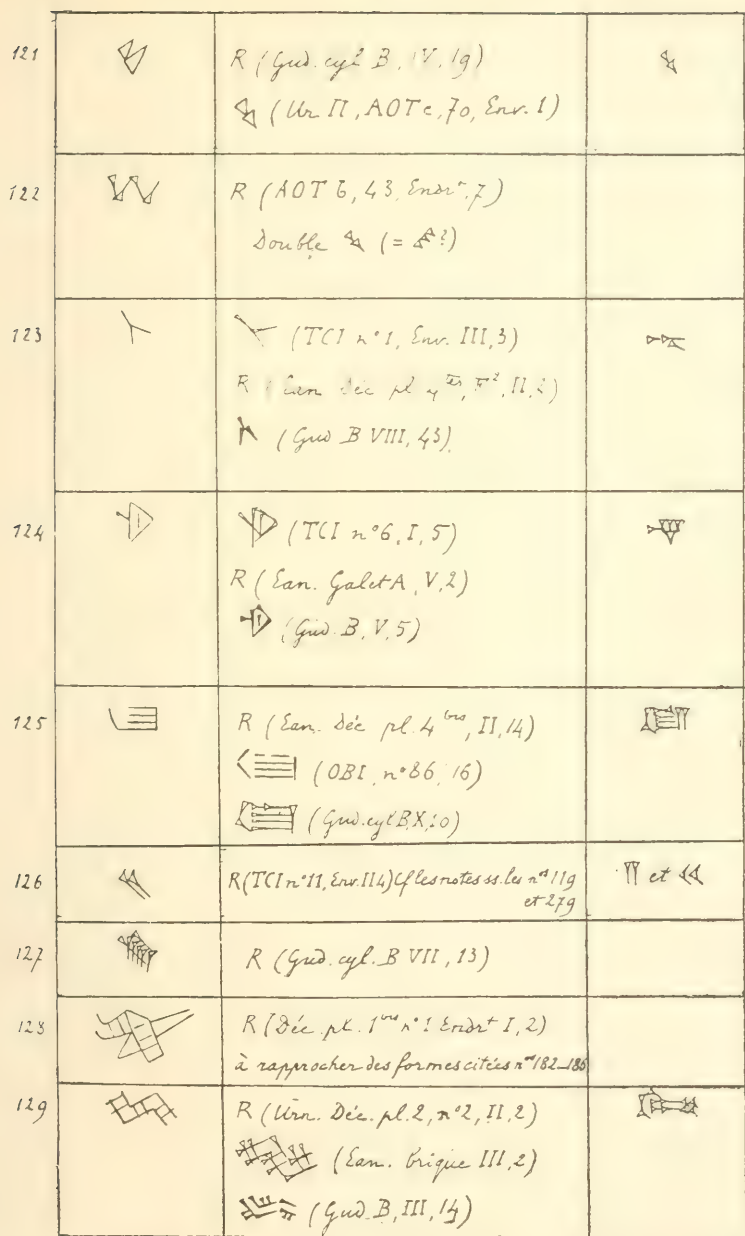 121 R (Gud. cyl. B, IV, 19)
(Ur. II, AOT c, 70, Env. 1)
122 R (AOT b, 43, Endrt. 7)
Double (= ?)
123 (TCI n° 1, Env. III, 3)
R (Ean. Déc. pl. 4 ter, F², II, 2)
(Gud B VIII, 43)
124 (TCI n° 6, I, 5)
R (Ean. Galet A, V, 2)
(Gud. B, V, 5)
125 R (Ean. Déc. pl. 4, II, 14)
(OBI, n° 86, 16)
(Gud. cyl B, X, 10)
126 R (TCI n° 11, Env. II 4) Cf les notes ss. les nos 119 et
et 279
127 R (Gud. cyl. B VII, 13)
128 R (Déc. pl. 1 n° 1 Endrt I, 2)
à rapprocher des formes citées nos 182_186
129 R (Urn. Déc. pl. 2, n° 2, II, 2)
(Ean. brique III, 2)
(Gud. B, III, 14)